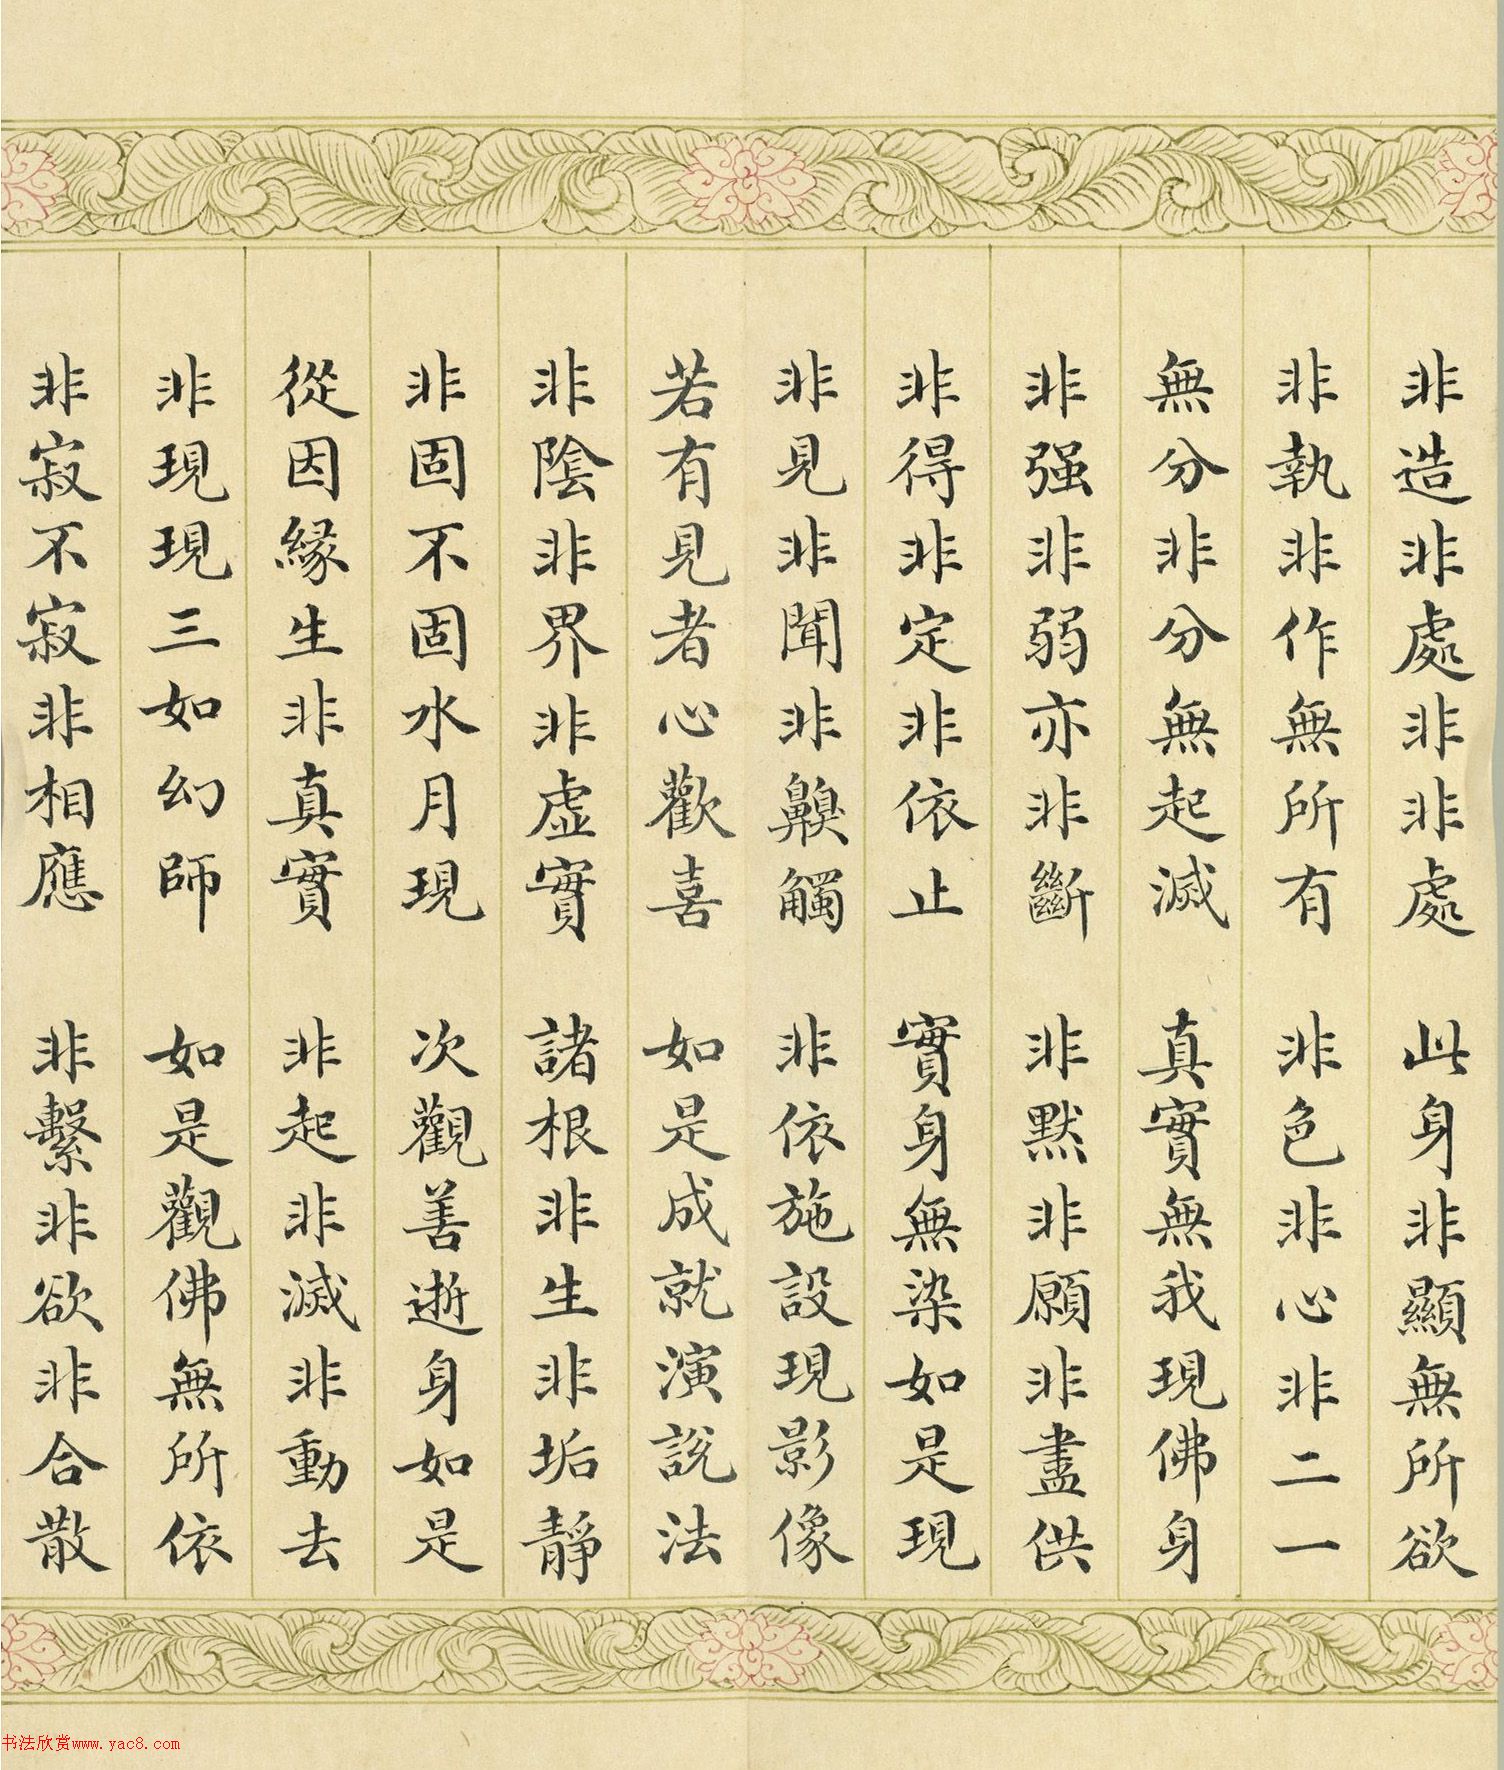 非造非處非非處　此身非顯無所欲
非執非作無所有　非色非心非二一
無分非分無起滅　真實無我現佛身
非强非弱亦非斷　非默非願非盡供
非得非定非依止　實身無染如是現
非見非聞非齅觸　非依施設現影像
若有見者心歡喜　如是成就演說法
非陰非界非虛實　諸根非生非垢靜
非固不固水月現　次觀善逝身如是
從因緣生非真實　非起非滅非動去
非現現三如幻師　如是觀佛無所依
非寂不寂非相應　非繫非欲非合散
书法欣赏www.yac8.com